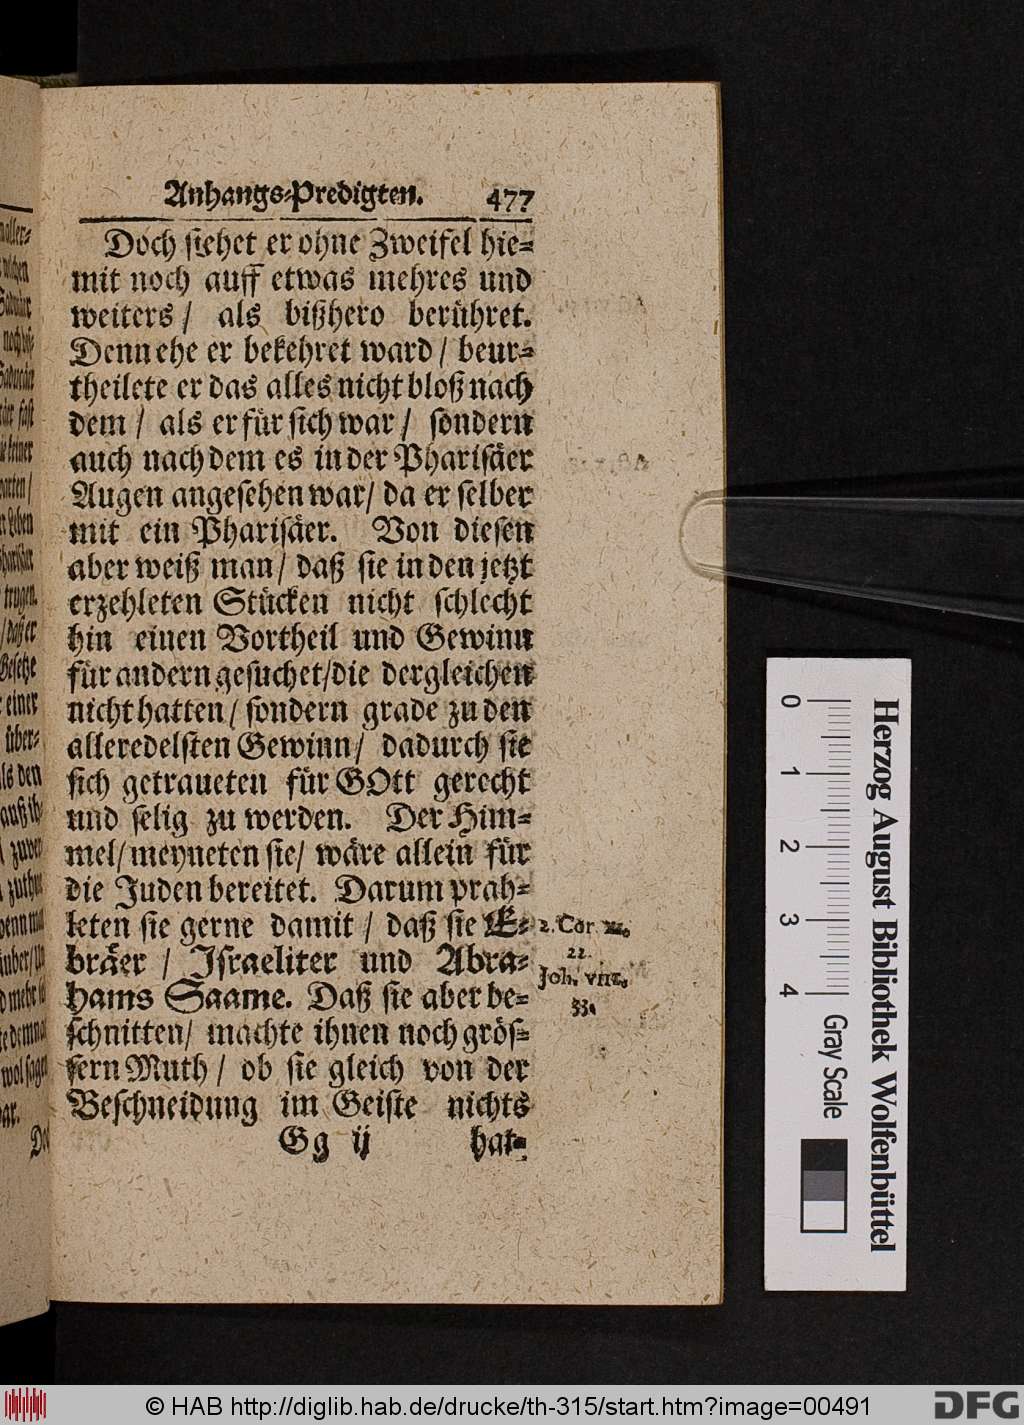 Anhangs-Predigten. 477
Doch siehet er ohne Zweifel hie-
mit noch auff etwas mehres und
weiters / als bißhero berühret.
Denn ehe er bekehret ward / beur-
theilete er das alles nicht bloß nach
dem / als er für sich war / sondern
auch nach dem es in der Pharisäer
Augen angesehen war / da er selber
mit ein Pharisäer. Von diesen
aber weiß man / daß sie in den jetzt
erzehleten Stücken nicht schlecht
hin einen Vortheil und Gewinn
für andern gesuchet / die dergleichen
nicht hatten / sondern grade zu den
alleredelsten Gewinn / dadurch sie
sich getraueten für GOtt gerecht
und selig zu werden. Der Him-
mel / meyneten sie / wäre allein für
die Juden bereitet. Darum prah-
leten sie gerne damit / daß sie E-
bräer / Israeliter und Abra-
hams Saame. Daß sie aber be-
schnitten / machte ihnen noch grös-
sern Muth / ob sie gleich von der
Beschneidung im Geiste nichts
Gg ij hat-
2. Cor. XI.
22.
Joh. VIII.
33.
0 1 2 3 4
Gray Scale
Herzog August Bibliothek Wolfenbüttel
© HAB http://diglib.hab.de/drucke/th-315/start.htm?image=00491
DFG